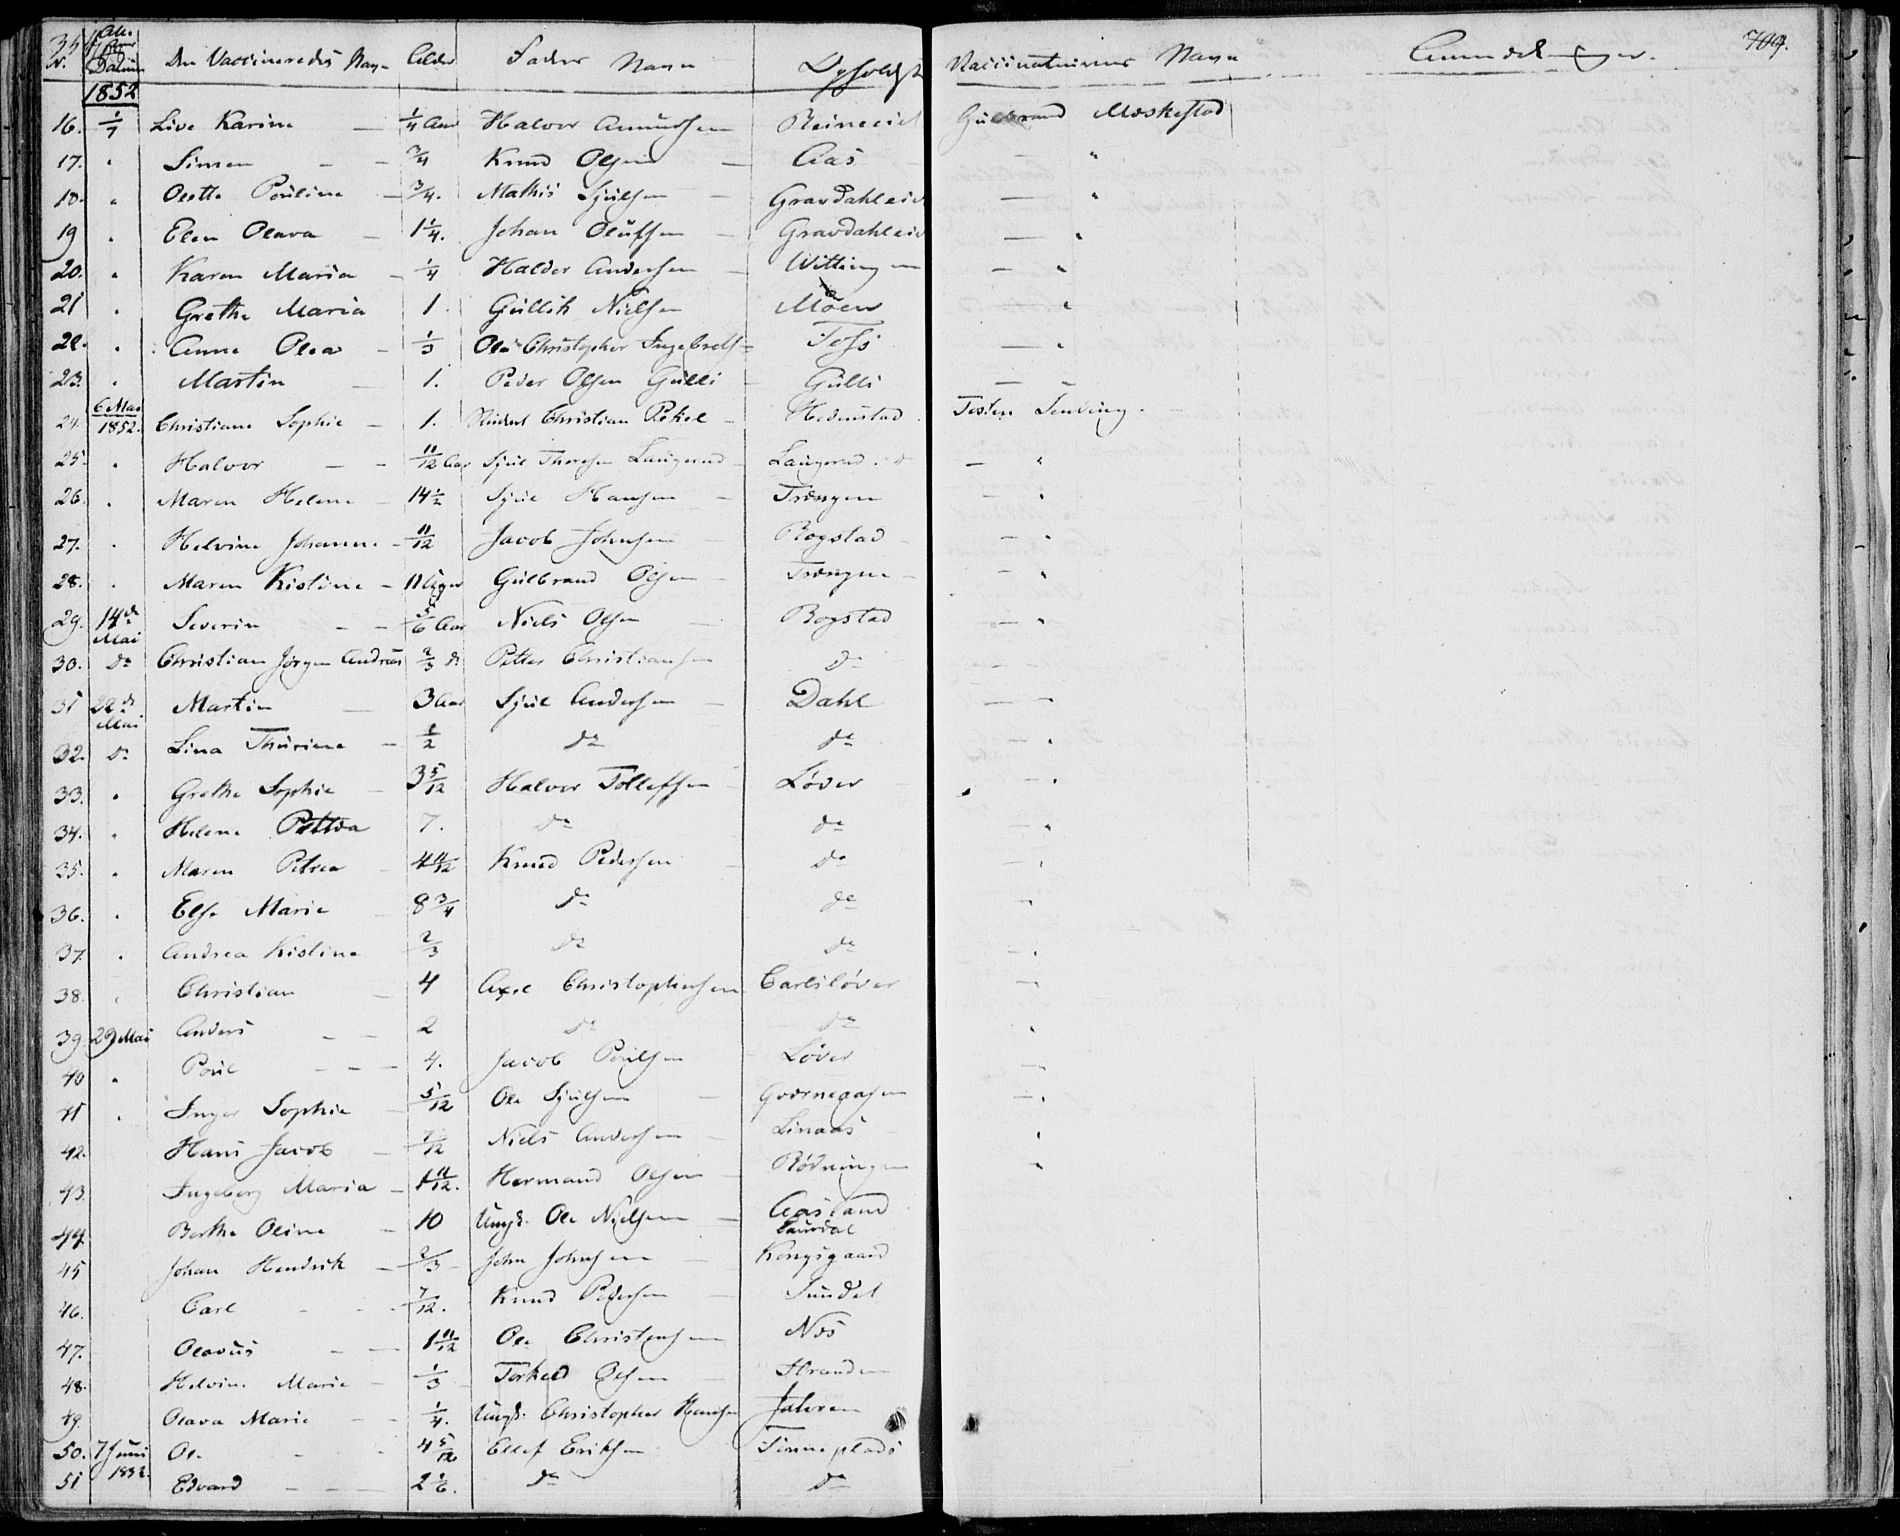 Datum Den Vaccineredes Navn Alder Fader Navn Opholdst Vaccinateurens Navn Anmerkninger. 709.
1852
16. 1/7 Live Karine — 1/4 Aar Halvor Amundsen Reineeiet Gulbrand Moskestad
17. " Simen — — 3/4 Knud Olsen — Aas — "
18. " Olette Pouline — 3/4. Mathis Sjulsen — Gravdahleie — "
19 " Elen Olava — 1 1/4. Johan Olufsen — Gravdahleie — "
20. " Karen Maria — 1/4 Haldor Andersen — Wittingen — "
21 " Grethe Maria 1. Gullik Nielsen Moen "
22. " Anne Olea — 1/3 Ole Christopher Ingebrets= Foss — "
23. " Martin — 1. Peder Olsen Gulli — Gulli — "
24. 6 Mai 1852. Christiane Sophie — 1. Christian Hedenstad
25. " Halvor — — 11/12 Aar Sjul Langerud — Langerud — "
26. " Maren Helene — 14 1/2 Sjul Hansen — — "
27. " Helvine Johanne — 11/12 Jacob Johnsen — Bogstad — — "
28. " Maren Kistine — 11 Uger Gulbrand Olsen — — — "
29. 14de Mai Severin — — 5/6 Aar Niels Olsen — Bogstad — "
30. do Christian Jørgen Andreas 2/3 do Petter Christiansen do — —
31 22de Mai Martin — 3 Aar Sjul Andersen — Dahl — —
32. do Lina Thurine — 1/2 do do — "
33. " Grethe Sophie — 3 5/12 Halvor Tollefsen — Løver — "
34. " Helene 7. do do — "
35. " Maren Petrea — 4 11/12 Knud Pedersen — do — "
36. " Else Marie — 8 3/4 do do — "
37. " Andrea Kistine 2/3 do do — "
38. " Christian — 4 Axel Christophersen Carlsløver — "
39. 29 Mai Anders — — 2 do do "
40 " Poul — — — 4. Jacob Poulsen Løver — "
41 " Inger Sophie — 5/12 Ole Sjulsen — — "
42. Hans Jacob — 7/12 Niels Andersen — Linaas — "
43. Ingeborg Maria — 1 11/12. Hermand Olsen — Rødningen "
44. Berthe Oline — 10 Ungk. Ole Nielsen — Aasland
45 Johan Hendrik — 2/3 — John Johnsen — Kongsgaard
46. Carl — — 7/12. Knud Pedersen — Sundet
47. Olavus — — 1 11/12 Ole Christensen Næs
48. Helvine Marie — 1/3 — Torkel Olsen — Stranden
49. Olava Marie — — 1/4. Ungk. Christopher Hansen
50. 7 Juni 1852. Ole — 4 5/12 Ellef Eriksen Tinneplads
51 Edvard — — — 2 1/6. do do